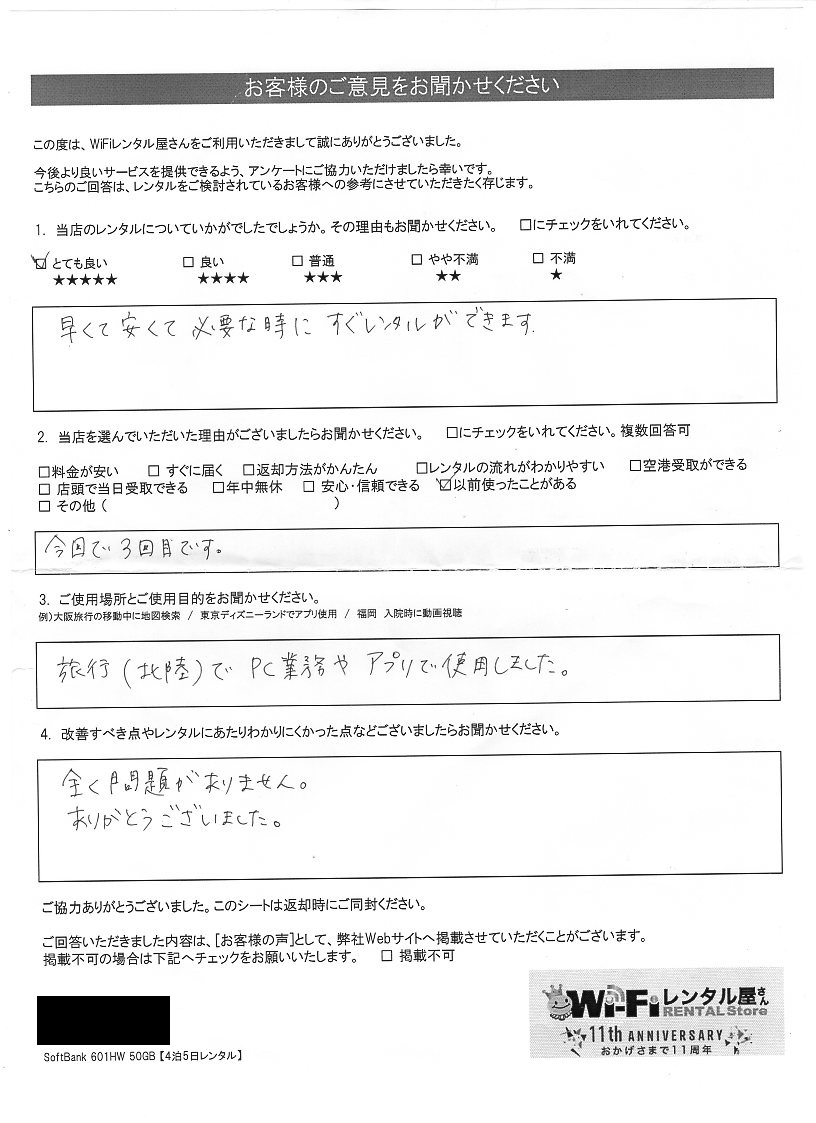 お客様のご意見をお聞かせください
この度は、WiFiレンタル屋さんをご利用いただきまして誠にありがとうございました。
今後より良いサービスを提供できるよう、アンケートにご協力いただけましたら幸いです。
こちらのご回答は、レンタルをご検討されているお客様への参考にさせていただきたく存じます。
1. 当店のレンタルについていかがでしたでしょうか。その理由もお聞かせください。 □にチェックをいれてください。
☑ とても良い □ 良い □ 普通 □ やや不満 □ 不満
★★★★★ ★★★★ ★★★ ★★ ★
早くて安くて必要な時にすぐレンタルができます.
2. 当店を選んでいただいた理由がございましたらお聞かせください。 □にチェックをいれてください。複数回答可
□料金が安い □ すぐに届く □返却方法がかんたん □レンタルの流れがわかりやすい □空港受取ができる
□ 店頭で当日受取できる □年中無休 □ 安心・信頼できる ☑以前使ったことがある
□ その他 ( )
今回で3回目です。
3. ご使用場所とご使用目的をお聞かせください。
例)大阪旅行の移動中に地図検索 / 東京ディズニーランドでアプリ使用 / 福岡 入院時に動画視聴
旅行(北陸)でPC業務やアプリで使用しました。
4. 改善すべき点やレンタルにあたりわかりにくかった点などございましたらお聞かせください。
全く問題がありません。
ありがとうございました。
ご協力ありがとうございました。このシートは返却時にご同封ください。
ご回答いただきました内容は、[お客様の声]として、弊社Webサイトへ掲載させていただくことがございます。
掲載不可の場合は下記へチェックをお願いいたします。 □ 掲載不可
Wi-Fiレンタル屋さん
RENTAL Store
11th ANNIVERSARY
おかげさまで11周年
SoftBank 601HW 50GB【4泊5日レンタル】